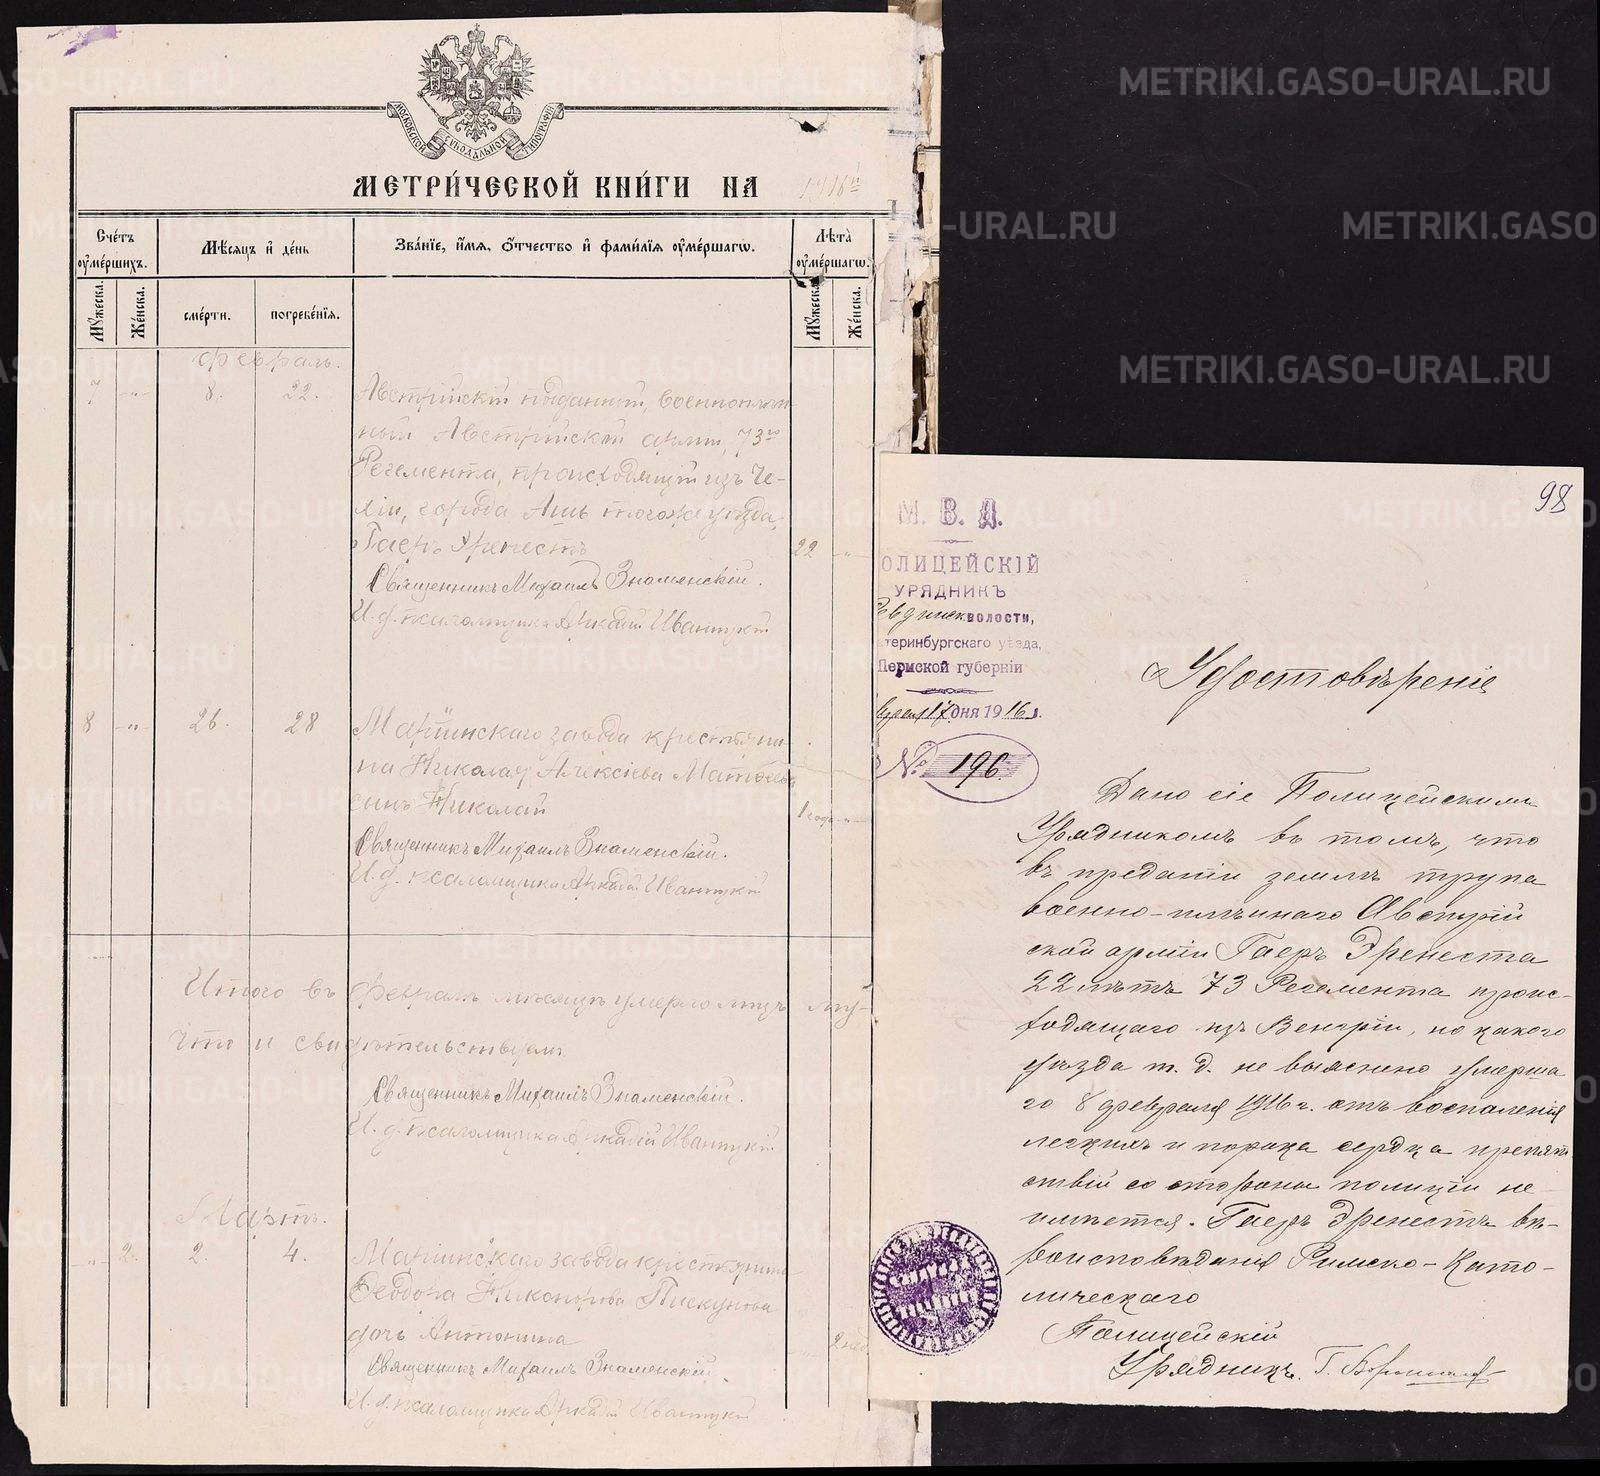 МОСКОВСКОЙ СѴНОДАЛЬНОЙ ТИПОГРАФІИ
МЕТРИ́ЧЕСКОЙ КНИ́ГИ НА 1916й
Сче́тъ ᲂу҆ме́ршихъ.
Мѣ́сяцъ и҆ де́нь
Зва́нїе, и҆́мя, ѻ҆́тчество и҆ фами́лїя ᲂу҆ме́ршагѡ.
Лѣта̀ ᲂу҆ме́ршагѡ.
Мꙋ́жеска.
Же́нска.
сме́рти.
погребе́нїя.
Мꙋ́жеска.
Же́нска.
Февраль.
7 -„- 8. 22. Австрійскій подданный, военноплѣн-
ный Австрійской арміи, 73го
Регемента, происходящій изъ Че-
хіи, города Ашъ того же уѣзда,
Гаеръ Эрнестъ 22 -„-
Священникъ Михаилъ Знаменскій.
И. д. псаломщика Аркадій Иваницкій
8 -„- 26. 28 Маріинскаго завода крестьяни-
на Николая Алексіева
сынъ Николай 1 года -„-
Священникъ Михаилъ Знаменскій.
И. д. псаломщика Аркадій Иваницкій
Итого въ февралѣ мѣсяцѣ умерло лицъ му-
Что и свидѣтельствуемъ
Священникъ Михаилъ Знаменскій.
И. д. псаломщика Аркадій Иваницкій
Мартъ.
-„- 2. 2. 4. Маріинскаго завода крестьянина
Феодора Никонорова Пискунова
дочь Антонина 2 нед.
Священникъ Михаилъ Знаменскій.
И. д. псаломщика Аркадій Иваницкій
98
М. В. Д.
ОЛИЦЕЙСКІЙ
УРЯДНИКЪ
волости,
теринбургскаго уѣзда,
Пермской губерніи
17 дня 1916 г.
№ 196
Удостовѣреніе
Дано сіе Полицейскимъ
Урядникомъ въ томъ, что
въ преданіи землѣ трупа
военно-плѣннаго Австрій
ской арміи Гаеръ Эренеста
22 лѣтъ 73 Регемента проис-
ходящаго изъ Венгріи, но какого
уѣзда т. д. не выяснено умерша
го 8 февраля 1916 г. отъ воспаленія
легкихъ и порока сердца препят
ствій со стороны полиціи не
имѣется. Гаеръ Эренестъ вѣ-
роисповѣданія Римско-Като-
лическаго
Полицейскій
Урядникъ. Г.
METRIKI.GASO-URAL.RU